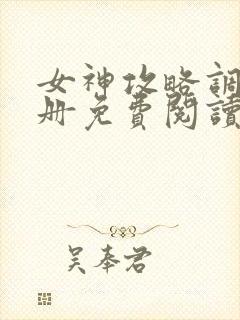 女神攻略調
册免費閱讀
吴奉君